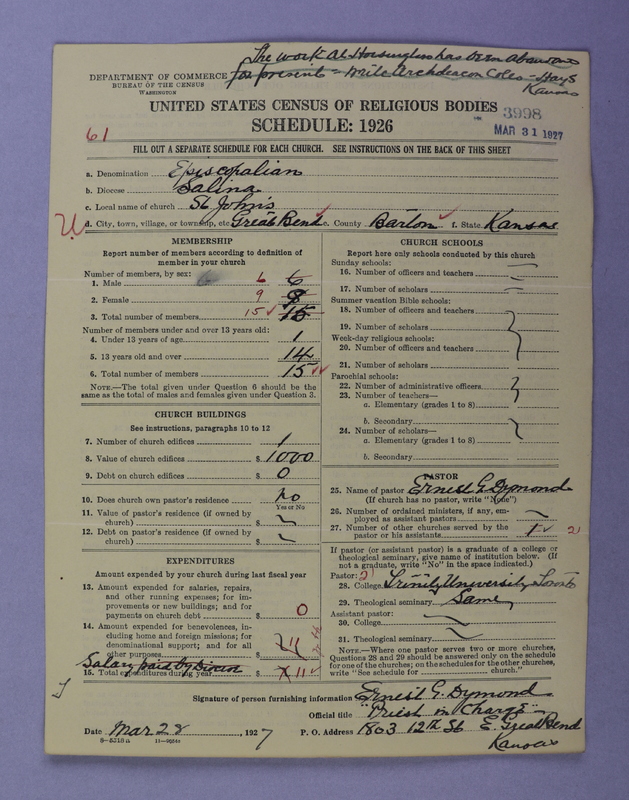 The work at has been abandoned
for present - write Archdeacon Coles - Hays
Kansas
DEPARTMENT OF COMMERCE
BUREAU OF THE CENSUS
WASHINGTON
UNITED STATES CENSUS OF RELIGIOUS BODIES
3998
SCHEDULE: 1926
MAR 31 1927
61
FILL OUT A SEPARATE SCHEDULE FOR EACH CHURCH. SEE INSTRUCTIONS ON THE BACK OF THIS SHEET
a. Denomination Episcopalian
b. Diocese Salina
c. Local name of church St John's
U d. City, town, village, or township, etc. Great Bend e. County Barton f. State Kansas
MEMBERSHIP
Report number of members according to definition of
member in your church
Number of members, by sex:
1. Male 6 6
2. Female 9 8
3. Total number of members 15 15
Number of members under and over 13 years old:
4. Under 13 years of age 1
5. 13 years old and over 14
6. Total number of members 15
NOTE.—The total given under Question 6 should be the
same as the total of males and females given under Question 3.
CHURCH BUILDINGS
See instructions, paragraphs 10 to 12
7. Number of church edifices 1
8. Value of church edifices $ 1000
9. Debt on church edifices $ 0
10. Does church own pastor's residence No
Yes or No
11. Value of pastor's residence (if owned by
church) $
12. Debt on pastor's residence (if owned by
church) $
EXPENDITURES
Amount expended by your church during last fiscal year
13. Amount expended for salaries, repairs,
and other running expenses; for im-
provements or new buildings; and for
payments on church debt $ 0
14. Amount expended for benevolences, in-
cluding home and foreign missions; for
denominational support; and for all
other purposes $ 11
Salary paid by
15. Total expenditures during year $ 11
CHURCH SCHOOLS
Report here only schools conducted by this church
Sunday schools:
16. Number of officers and teachers
17. Number of scholars
Summer vacation Bible schools:
18. Number of officers and teachers
19. Number of scholars
Week-day religious schools:
20. Number of officers and teachers
21. Number of scholars
Parochial schools:
22. Number of administrative officers
23. Number of teachers—
a. Elementary (grades 1 to 8)
b. Secondary
24. Number of scholars—
a. Elementary (grades 1 to 8)
b. Secondary
PASTOR
25. Name of pastor Ernest G. Dymond
(If church has no pastor, write "None")
26. Number of ordained ministers, if any, em-
ployed as assistant pastors
27. Number of other churches served by the
pastor or his assistants 1 21
If pastor (or assistant pastor) is a graduate of a college or
theological seminary, give name of institution below. (If
not a graduate, write "No" in the space indicated.)
Pastor: 2
28. College Trinity University Toronto
29. Theological seminary Same
Assistant pastor:
30. College
31. Theological seminary
NOTE.—Where one pastor serves two or more churches,
Questions 28 and 29 should be answered only on the schedule
for one of the churches; on the schedules for the other churches,
write "See schedule for church."
Signature of person furnishing information Ernest G. Dymond
Official title "Priest in Charge"
Date Mar 28, 1927 P. O. Address 1803 12th St E. Great Bend
8-5218a Kansas